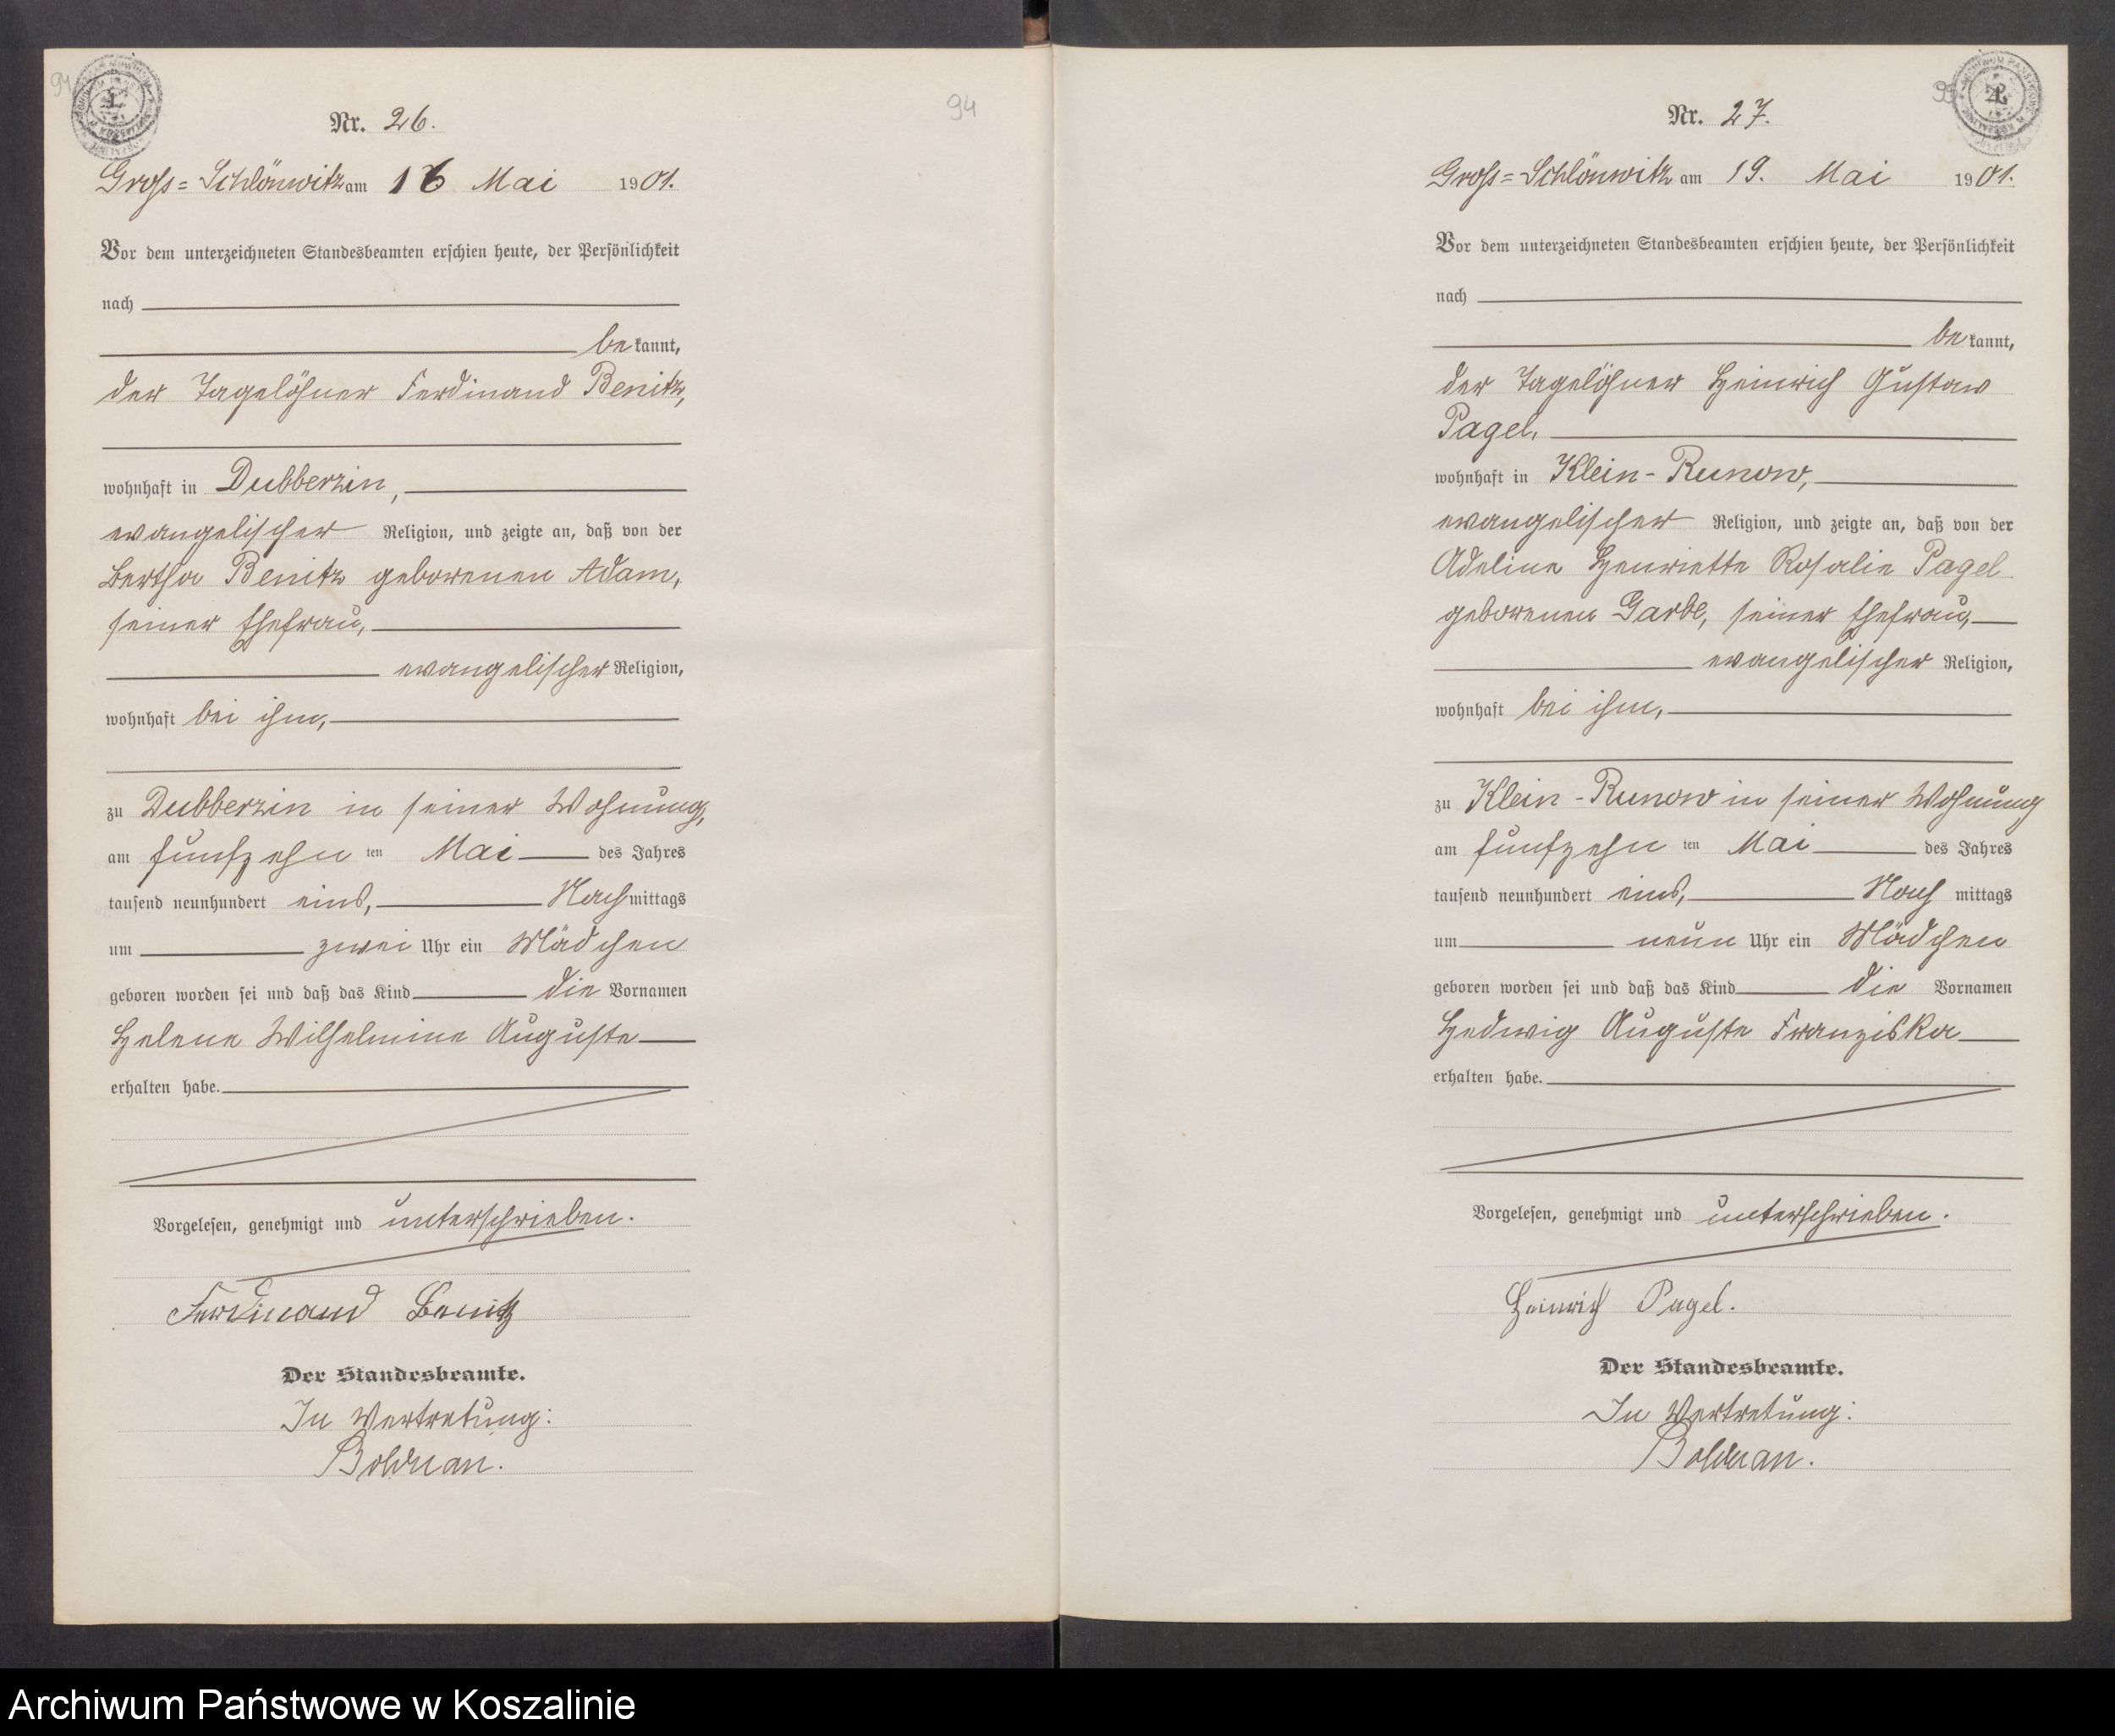 94
Nr. 26.
Gross=Schlönwitz am 16 Mai 1901.
Vor dem unterzeichneten Standesbeamten erschien heute, der Persönlichkeit
nach
bekannt,
der Tagelöhner Ferdinand Benitz,
wohnhaft in Dubberzin,
evangelischer Religion, und zeigte an, daß von der
Bertha Benitz geborenen Adam,
seiner Ehefrau,
evangelischer Religion,
wohnhaft bei ihm,
zu Dubberzin in seiner Wohnung,
am fünfzehn ten Mai des Jahres
tausend neunhundert eins, Nachmittags
um zwei Uhr ein Mädchen
geboren worden sei und daß das Kind die Vornamen
Helene Wilhelmine Auguste
erhalten habe.
Vorgelesen, genehmigt und unterschrieben.
Ferdinand Benitz
Der Standesbeamte.
In Vertretung:
Bolduan.
94
Nr. 27.
Gross=Schlönwitz am 19. Mai 1901.
Vor dem unterzeichneten Standesbeamten erschien heute, der Persönlichkeit
nach
bekannt,
der Tagelöhner Heinrich Gustav
Pagel,
wohnhaft in Klein-Runow,
evangelischer Religion, und zeigte an, daß von der
Adeline Henriette Rosalie Pagel
geborenen Garbe, seiner Ehefrau,
evangelischer Religion,
wohnhaft bei ihm,
zu Klein-Runow in seiner Wohnung
am fünfzehn ten Mai des Jahres
tausend neunhundert eins, Nach mittags
um neun Uhr ein Mädchen
geboren worden sei und daß das Kind die Vornamen
Hedwig Auguste Franziska
erhalten habe.
Vorgelesen, genehmigt und unterschrieben.
Heinrich Pagel.
Der Standesbeamte.
In Vertretung:
Bolduan.
Archiwum Państwowe w Koszalinie